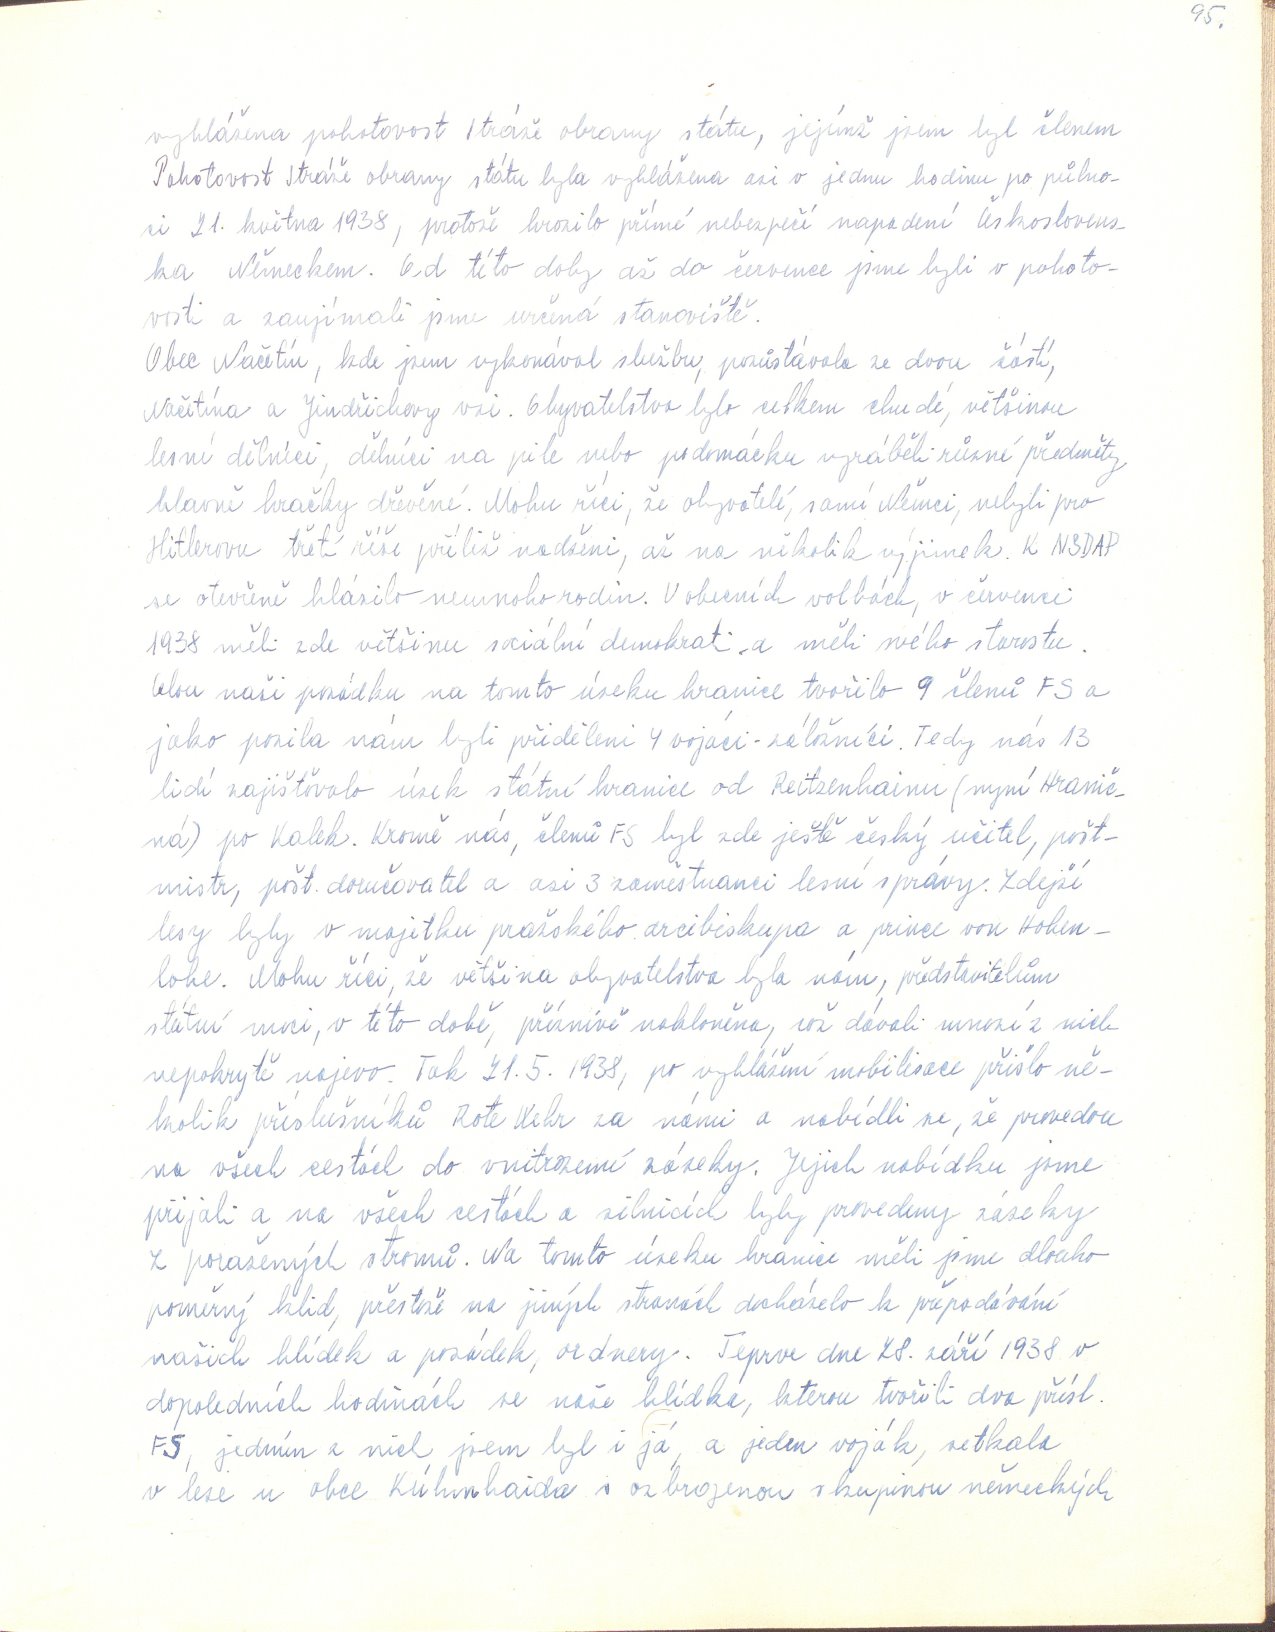 95.
vyhlášena pohotovost Stráže obrany státu, jejímž jsem byl členem
Pohotovost Stráže obrany státu byla vyhlášena asi v jednu hodinu po půlno-
ci 21. května 1938, protože hrozilo přímé nebezpečí napadení Českosloven-
ska Německem. Od této doby až do července jsme byli v pohoto-
vosti a zaujímali jsme určená stanoviště.
Obec Načetín, kde jsem vykonával službu, pozůstávala ze dvou částí,
Načetína a Jindřichovy vsi. Obyvatelstvo bylo celkem chudé, většinou
lesní dělníci, dělníci na pile nebo podomácku vyráběli různé předměty
hlavně hračky dřevěné. Mohu říci, že obyvatelé, samí Němci, nebyli pro
Hitlerovu třetí říše příliš nadšeni, až na několik výjimek. K NSDAP
se otevřeně hlásilo nemnoho rodin. V obecních volbách, v červenci
1938 měli zde většinu sociální demokrati a měli svého starostu.
Celou naši posádku na tomto úseku hranice tvořilo 9 členů FS a
jako posila nám byli přiděleni 4 vojáci-záložníci. Tedy nás 13
lidí zajišťovalo úsek státní hranice od Reitzenhainu (nyní Hranič-
ná) po Kalek. Kromě nás, členů FS byl zde ještě český učitel, pošt-
mistr, pošt. doručovatel a asi 3 zaměstnanci lesní správy. Zdejší
lesy byly v majitku pražského arcibiskupa a prince von Hohen-
lohe. Mohu říci, že většina obyvatelstva byla nám, představitelům
státní moci, v této době, příznivě nakloněna, což dávali mnozí z nich
nepokrytě najevo. Tak 21. 5. 1938, po vyhlášení mobilisace přišlo ně-
kolik příslušníků Rote Wehr za námi a nabídli se, že provedou
na všech cestách do vnitrozemí záseky. Jejich nabídku jsme
přijali a na všech cestách a silnicích byly provedeny záseky
z poražených stromů. Na tomto úseku hranice měli jsme dlouho
poměrný klid, přestože na jiných stranách docházelo k přepadávání
našich hlídek a posádek, ordnery. Teprve dne 28. září 1938 v
dopoledních hodinách se naše hlídka, kterou tvořili dva přísl.
FS, jedním z nich jsem byl i já, a jeden voják, setkala
v lese u obce Kühnhaida s ozbrojenou skupinou německých